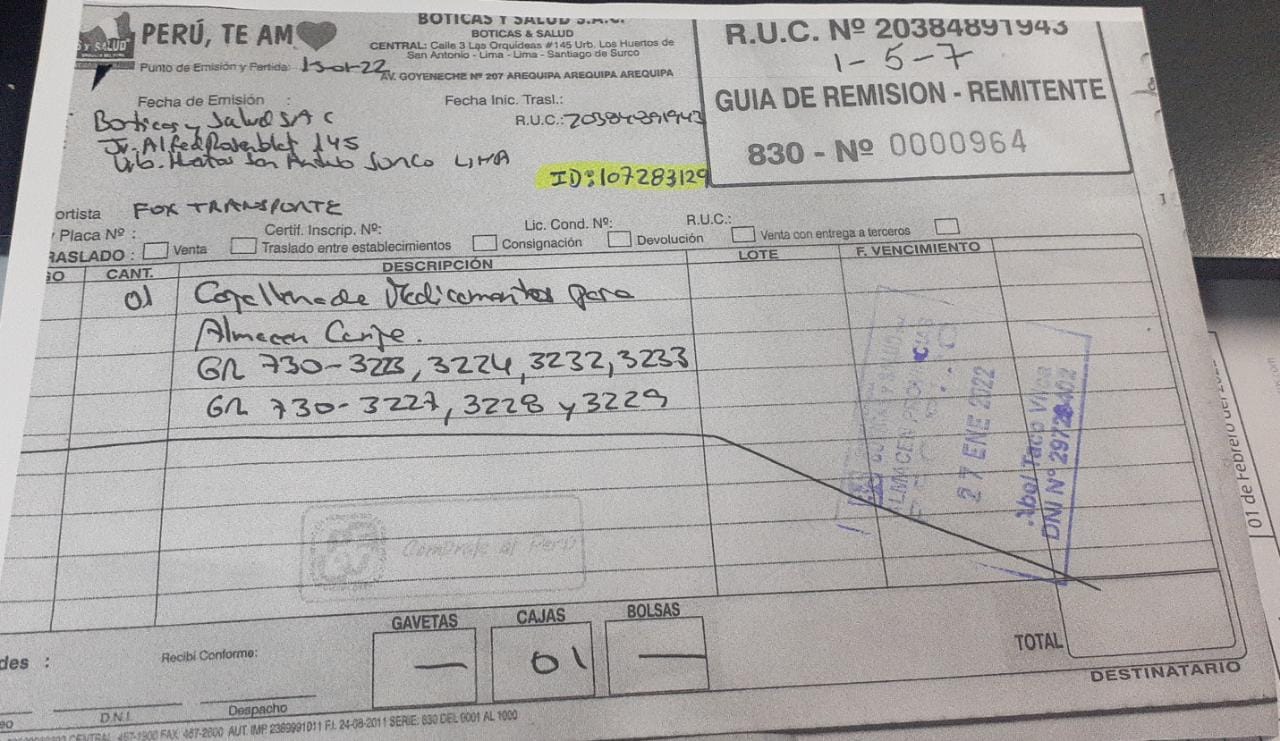 PERÚ, TE AM
BOTICAS Y SALUD S.A.C.
BOTICAS & SALUD
CENTRAL: Calle 3 Las Orquideas #145 Urb. Los Huertos de
San Antonio - Lima - Lima - Santiago de Surco
Punto de Emisión y Partida: 15-01-22
AV. GOYENECHE Nº 207 AREQUIPA AREQUIPA AREQUIPA
R.U.C. Nº 20384891943
1-5-7
GUIA DE REMISION - REMITENTE
830 - Nº 0000964
Fecha de Emisión :
Fecha Inic. Trasl.:
Boticas y Salud SAC
R.U.C.: 20384891943
Jr. Alfred Rosenblat 145
Urb. Huertos San Antonio Surco LIMA
ID: 107283129
ortista FOX TRANSPORTE
Placa Nº :
Certif. Inscrip. Nº:
Lic. Cond. Nº:
R.U.C.:
RASLADO : Venta Traslado entre establecimientos Consignación Devolución Venta con entrega a terceros
GO CANT. DESCRIPCIÓN LOTE F. VENCIMIENTO
01 Caja llena de Medicamentos para
Almacen Canje.
GR 730-3223, 3224, 3232, 3233
GR 730-3227, 3228 y 3229
ALMACEN PROVINCIAS
27 ENE 2022
Abel Taco Vilca
Cómprale al Perú
GAVETAS CAJAS BOLSAS
— 01 —
des :
Recibí Conforme:
TOTAL
DESTINATARIO
D.N.I.
Despacho
CENTRAL 467-1900 FAX: 467-2600 AUT. IMP. 2369991011 F.I. 24-08-2011 SERIE: 830 DEL 0001 AL 1000
01 de Febrero del